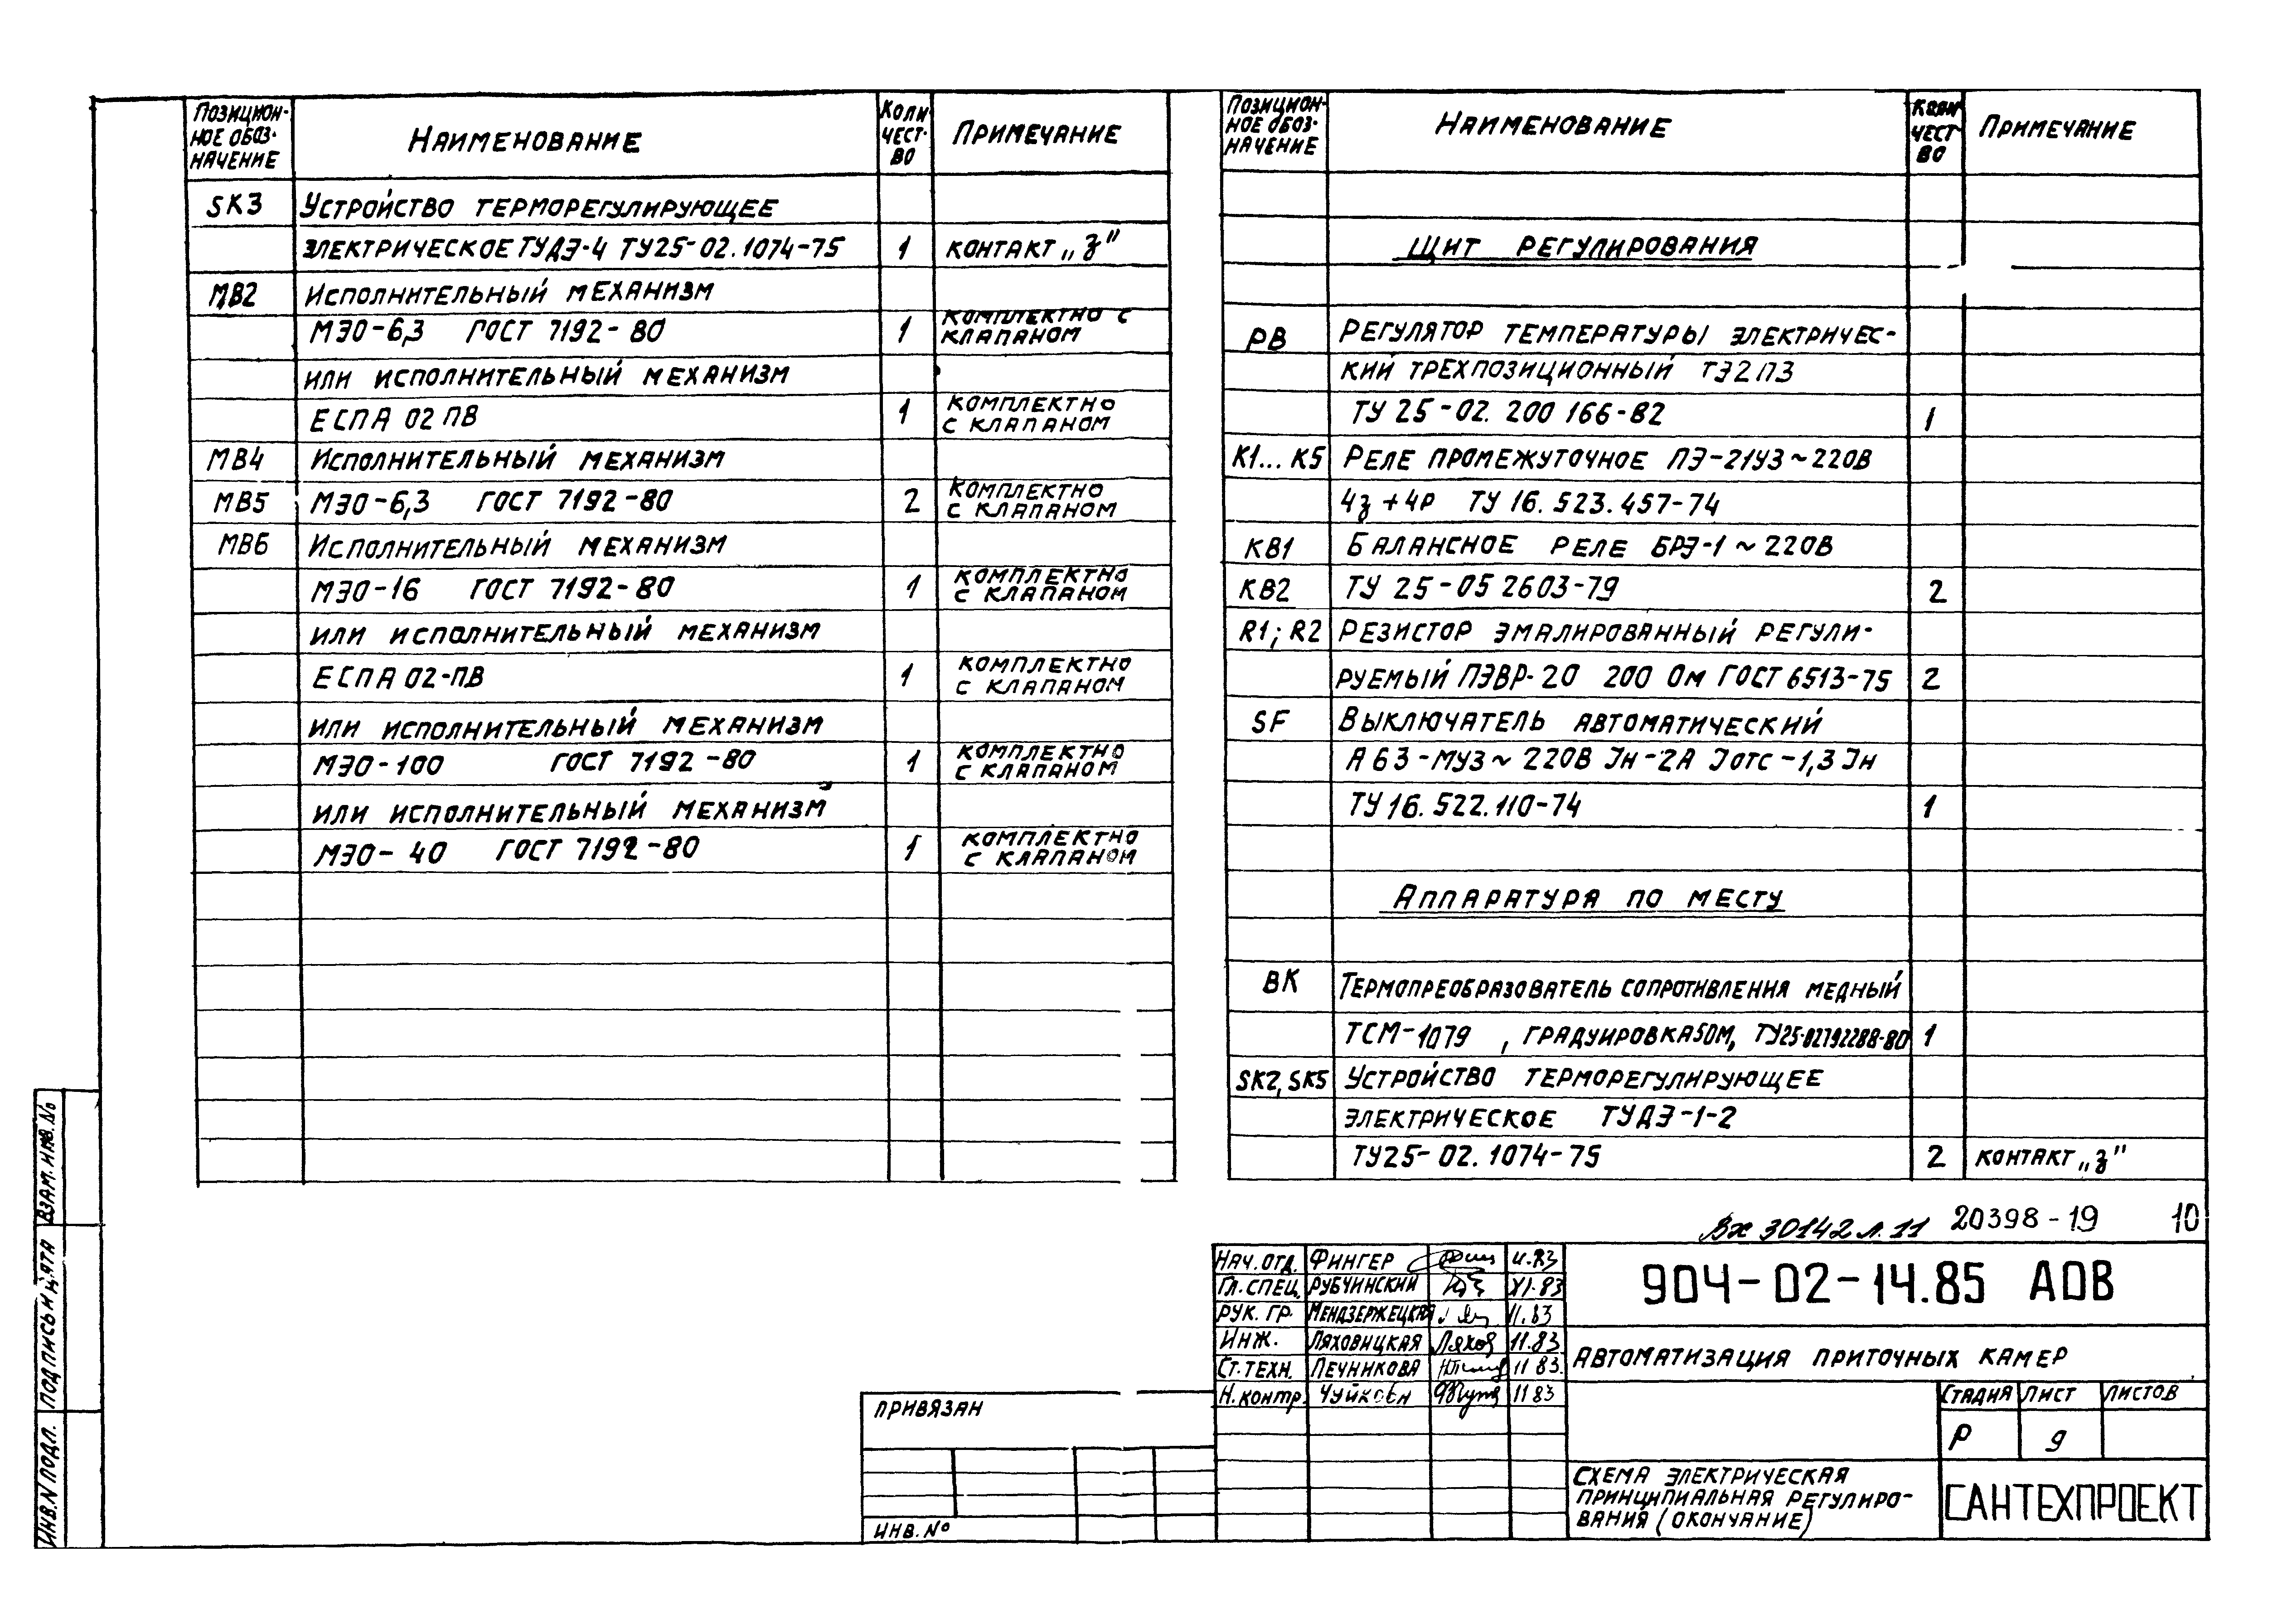 Позицион-
ное обоз-
начение
Наименование
Коли
чест-
во
Примечание
SK3 Устройство терморегулирующее
электрическое ТУДЭ-4 ТУ25-02.1074-75 1 контакт „з"
МВ2 Исполнительный механизм
МЭО-6,3 ГОСТ 7192-80 1 комплектно с
клапаном
или исполнительный механизм
ЕСПА 02 ПВ 1 комплектно
с клапаном
МВ4 Исполнительный механизм
МВ5 МЭО-6,3 ГОСТ 7192-80 2 комплектно
с клапаном
МВ6 Исполнительный механизм
МЭО-16 ГОСТ 7192-80 1 комплектно
с клапаном
или исполнительный механизм
ЕСПА 02-ПВ 1 комплектно
с клапаном
или исполнительный механизм
МЭО-100 ГОСТ 7192-80 1 комплектно
с клапаном
или исполнительный механизм
МЭО-40 ГОСТ 7192-80 1 комплектно
с клапаном
Позицион-
ное обоз-
начение
Наименование
чест
во
Примечание
Щит регулирования
РВ Регулятор температуры электричес-
кий трехпозиционный ТЭ2ПЗ
ТУ 25-02. 200 166-82 1
К1...К5 Реле промежуточное ПЭ-21УЗ ~220В
4з+4р ТУ 16.523.457-74
КВ1 Балансное реле БРЭ-1 ~220В
КВ2 ТУ 25-05 2603-79 2
R1; R2 Резистор эмалированный регули-
руемый ПЭВР-20 200 Ом ГОСТ 6513-75 2
SF Выключатель автоматический
А63-МУЗ ~ 220В Iн-2А Iотс-1,3 Iн
ТУ 16.522.110-74 1
Аппаратура по месту
ВК Термопреобразователь сопротивления медный
ТСМ-1079 , градуировка 50М, ТУ25-02792288-80 1
SK2, SK5 Устройство терморегулирующее
электрическое ТУДЭ-1-2
ТУ25-02.1074-75 2 контакт „з"
Вх 30142 л.11 20398-19 10
Нач. отд. Фингер 11.83
Гл. спец. Рубчинский XI.83
Рук. гр. Мендзержецкая 11.83
Инж. Ляховицкая Ляхов 11.83
Ст. техн. Печникова 11 83.
Н. контр. 11 83
904-02-14.85 АОВ
Автоматизация приточных камер
Стадия Лист Листов
Р 9
Схема электрическая
принципиальная регулиро-
вания (окончание)
САНТЕХПРОЕКТ
Привязан
Инв. №
Взам. инв. №
Подпись и дата
Инв. N подл.